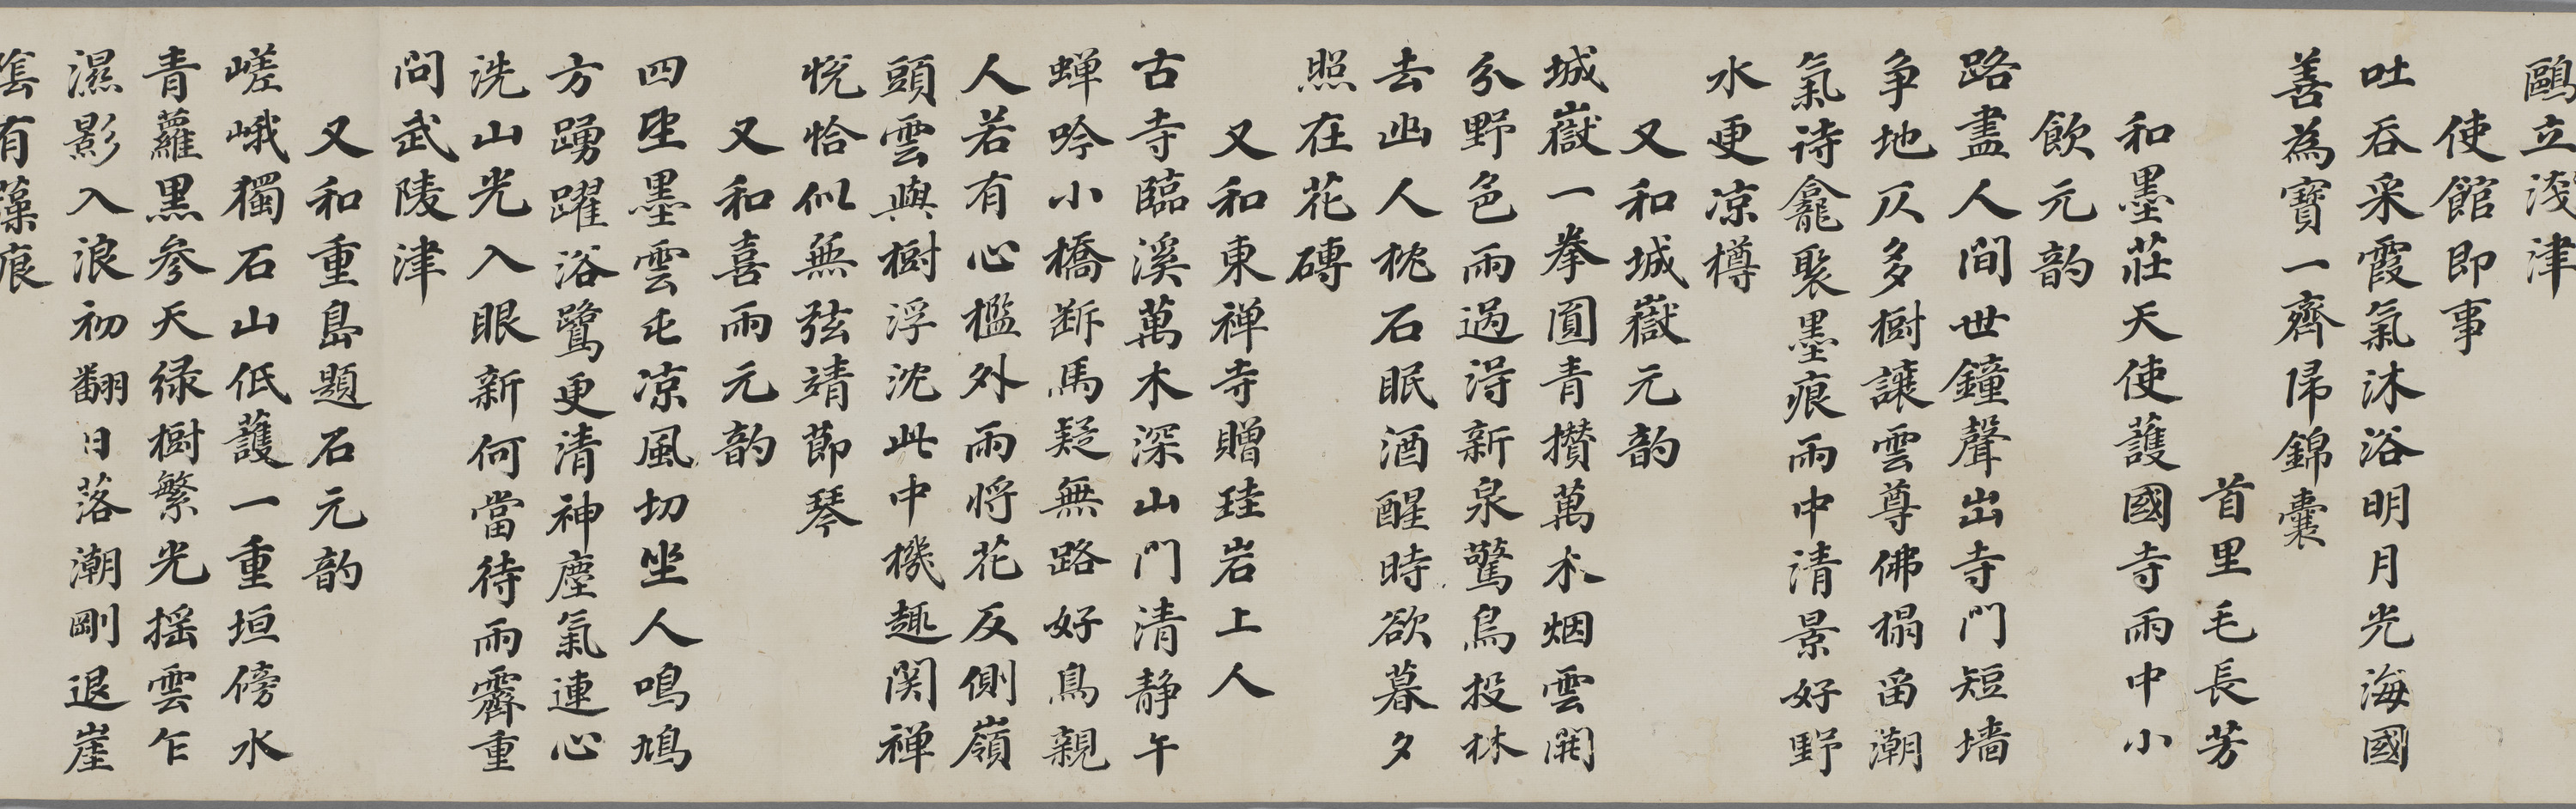 鷗立淺津
使館即事
吐吞采霞氣沐浴明月光海國
善為寶一齊帰錦囊
首里毛長芳
和墨莊天使護國寺雨中小
飲元韵
路盡人間世鐘聲出寺門短墻
争地仄多樹讓雲尊佛榻畱潮
氣诗龕聚墨痕雨中清景好野
水更凉樽
又和城嶽元韵
城嶽一拳圓青攅萬木烟雲開
分野色雨過淂新泉驚鳥投林
去幽人枕石眠酒醒時欲暮夕
照在花磚
又和東禅寺贈珪岩上人
古寺臨溪萬木深山門清静午
蝉吟小橋断馬疑無路好鳥親
人若有心檻外雨将花反側嶺
頭雲與樹浮沈此中機趣関禅
悦恰似無弦靖節琴
又和喜雨元韵
四望墨雲屯凉風切坐人鳴鳩
方踴躍浴鷺更清神塵氣連心
洗山光入眼新何當待雨霽重
問武陵津
又和重島題石元韵
嵯峨獨石山低護一重垣傍水
青蘿黑参天緑樹繁光揺雲乍
濕影入浪初翻日落潮剛退崖
陰有藻痕